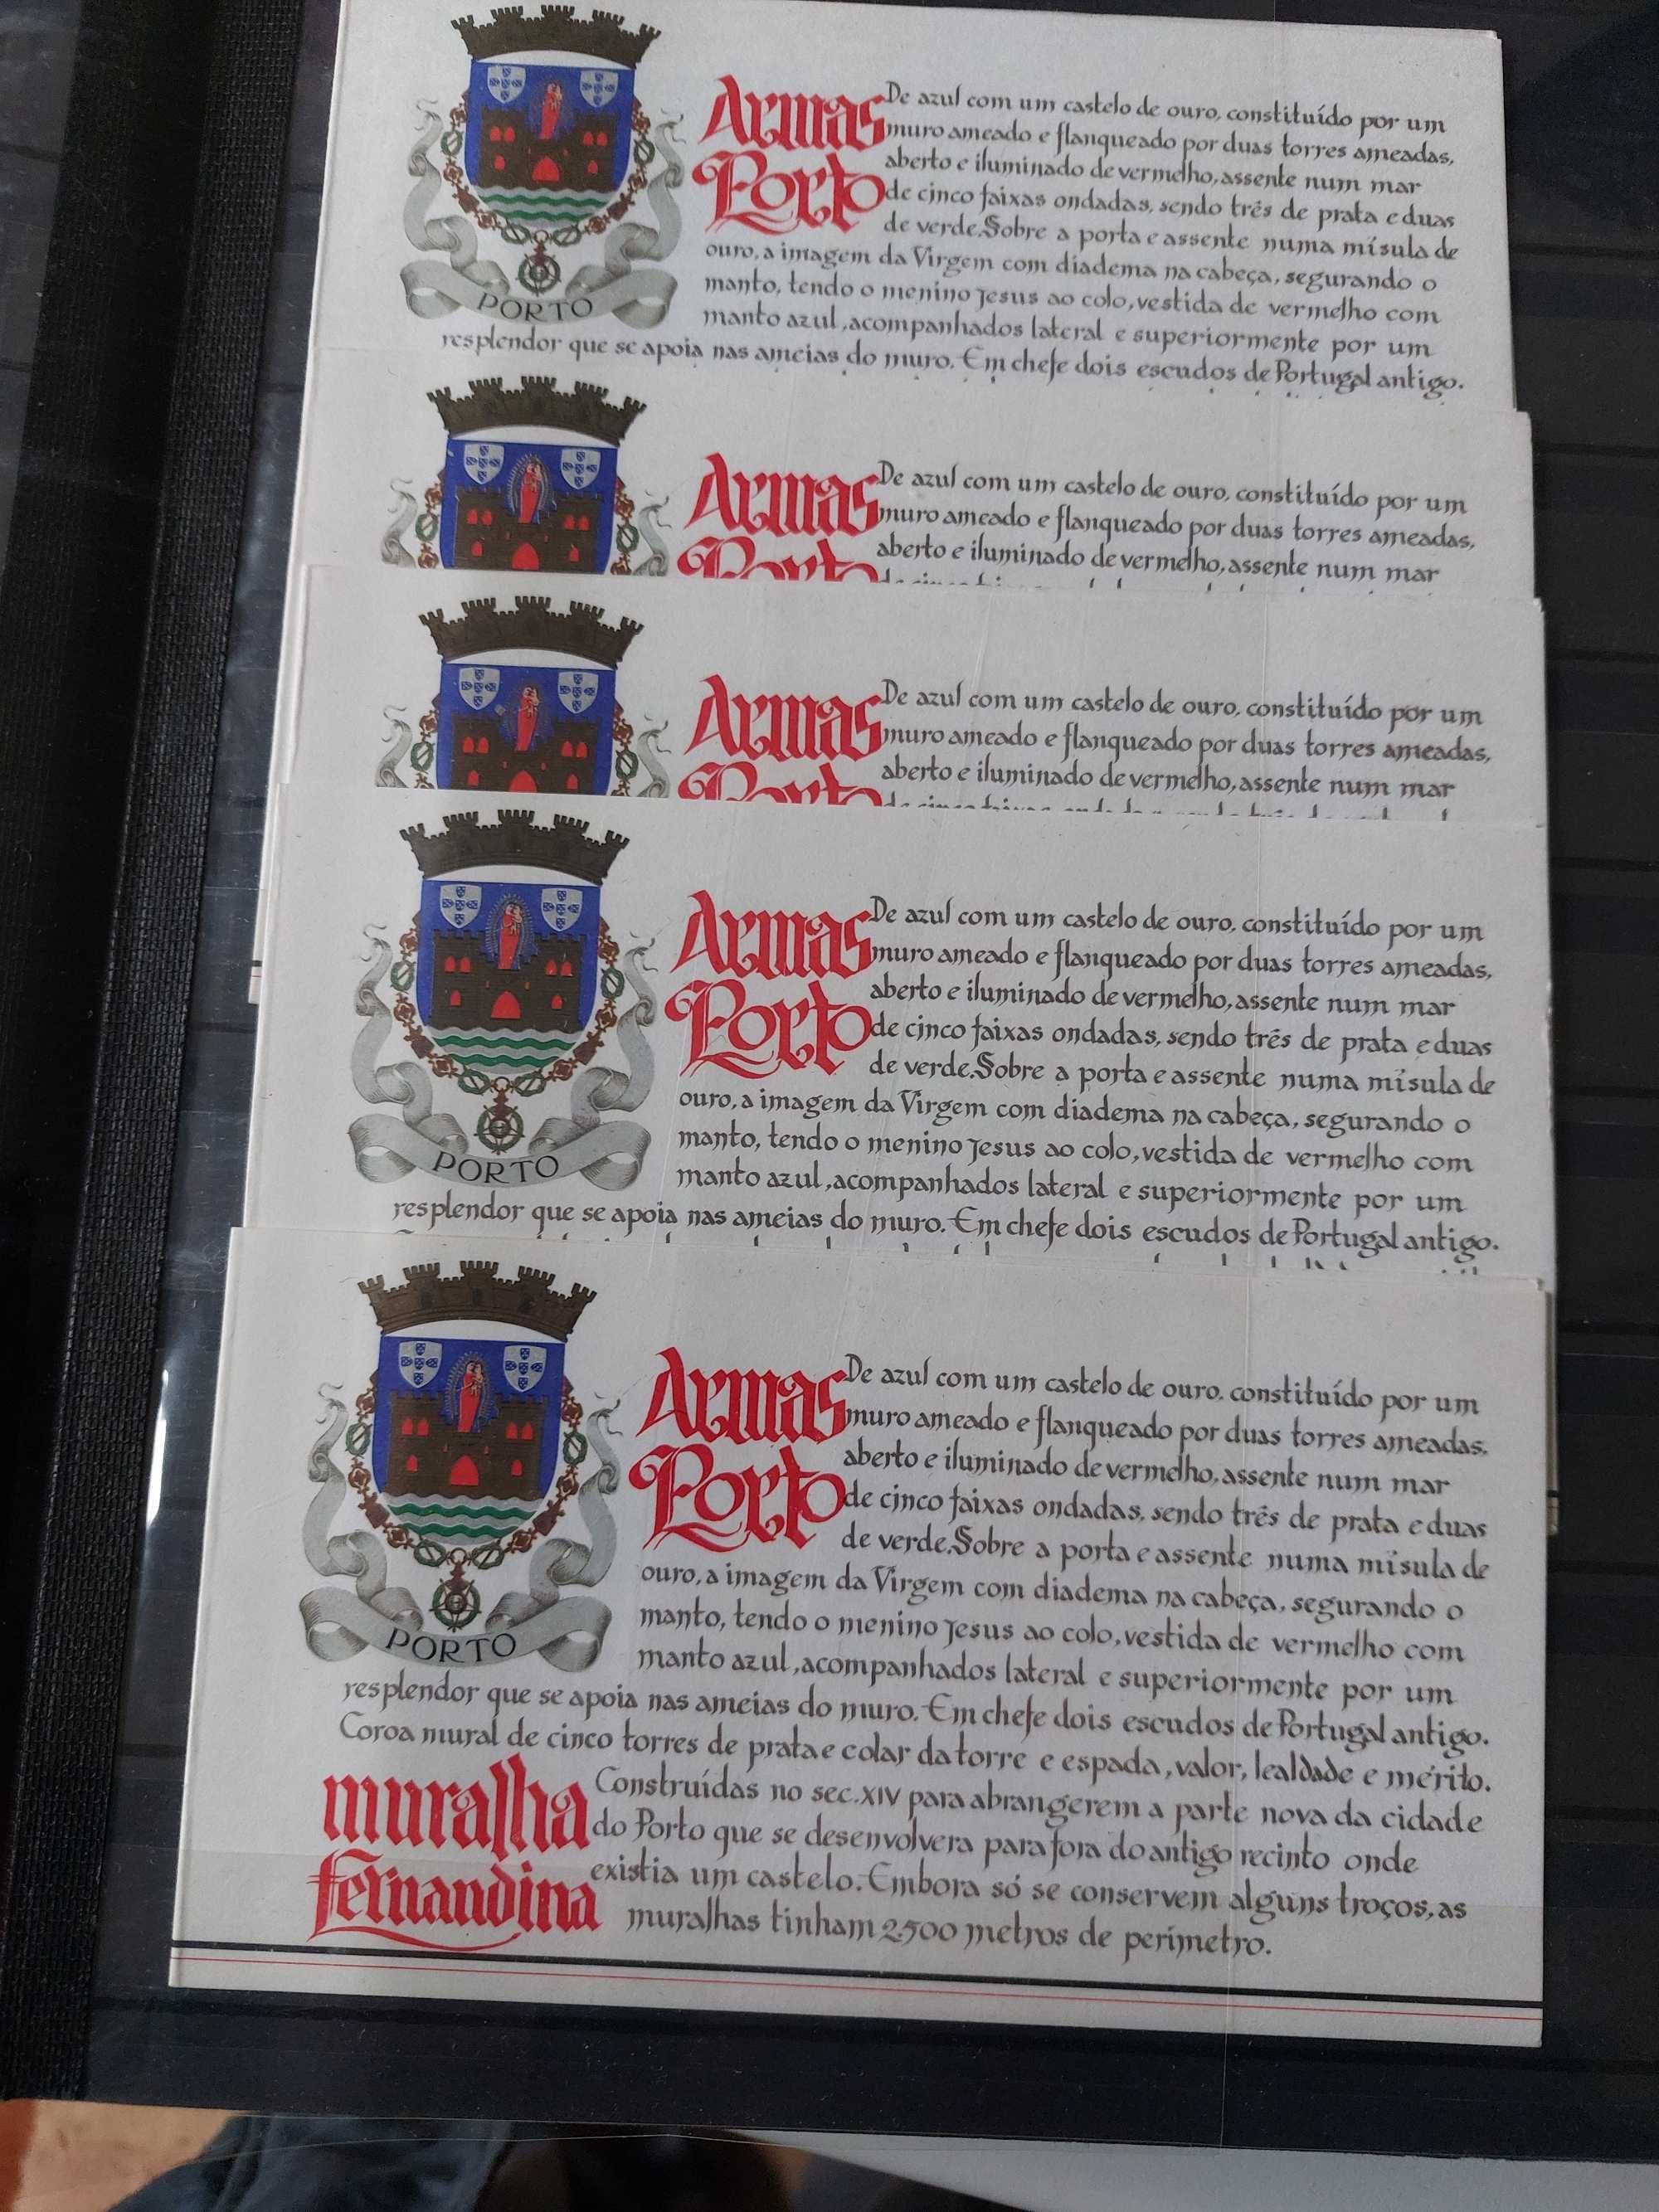 PORTO
Armas
Porto
De azul com um castelo de ouro, constituído por um
muro ameado e flanqueado por duas torres ameadas,
aberto e iluminado de vermelho, assente num mar
de cinco faixas ondadas, sendo três de prata e duas
de verde. Sobre a porta e assente numa mísula de
ouro, a imagem da Virgem com diadema na cabeça, segurando o
manto, tendo o menino Jesus ao colo, vestida de vermelho com
manto azul, acompanhados lateral e superiormente por um
resplendor que se apoia nas ameias do muro. Em chefe dois escudos de Portugal antigo.
Armas
Porto
De azul com um castelo de ouro, constituído por um
muro ameado e flanqueado por duas torres ameadas,
aberto e iluminado de vermelho, assente num mar
Armas
Porto
De azul com um castelo de ouro, constituído por um
muro ameado e flanqueado por duas torres ameadas,
aberto e iluminado de vermelho, assente num mar
PORTO
Armas
Porto
De azul com um castelo de ouro, constituído por um
muro ameado e flanqueado por duas torres ameadas,
aberto e iluminado de vermelho, assente num mar
de cinco faixas ondadas, sendo três de prata e duas
de verde. Sobre a porta e assente numa mísula de
ouro, a imagem da Virgem com diadema na cabeça, segurando o
manto, tendo o menino Jesus ao colo, vestida de vermelho com
manto azul, acompanhados lateral e superiormente por um
resplendor que se apoia nas ameias do muro. Em chefe dois escudos de Portugal antigo.
PORTO
Armas
Porto
De azul com um castelo de ouro, constituído por um
muro ameado e flanqueado por duas torres ameadas,
aberto e iluminado de vermelho, assente num mar
de cinco faixas ondadas, sendo três de prata e duas
de verde. Sobre a porta e assente numa mísula de
ouro, a imagem da Virgem com diadema na cabeça, segurando o
manto, tendo o menino Jesus ao colo, vestida de vermelho com
manto azul, acompanhados lateral e superiormente por um
resplendor que se apoia nas ameias do muro. Em chefe dois escudos de Portugal antigo.
Coroa mural de cinco torres de prata e colar da torre e espada, valor, lealdade e mérito.
muralha
Fernandina
Construídas no sec. XIV para abrangerem a parte nova da cidade
do Porto que se desenvolvera para fora do antigo recinto onde
existia um castelo. Embora só se conservem alguns troços, as
muralhas tinham 2.500 metros de perímetro.